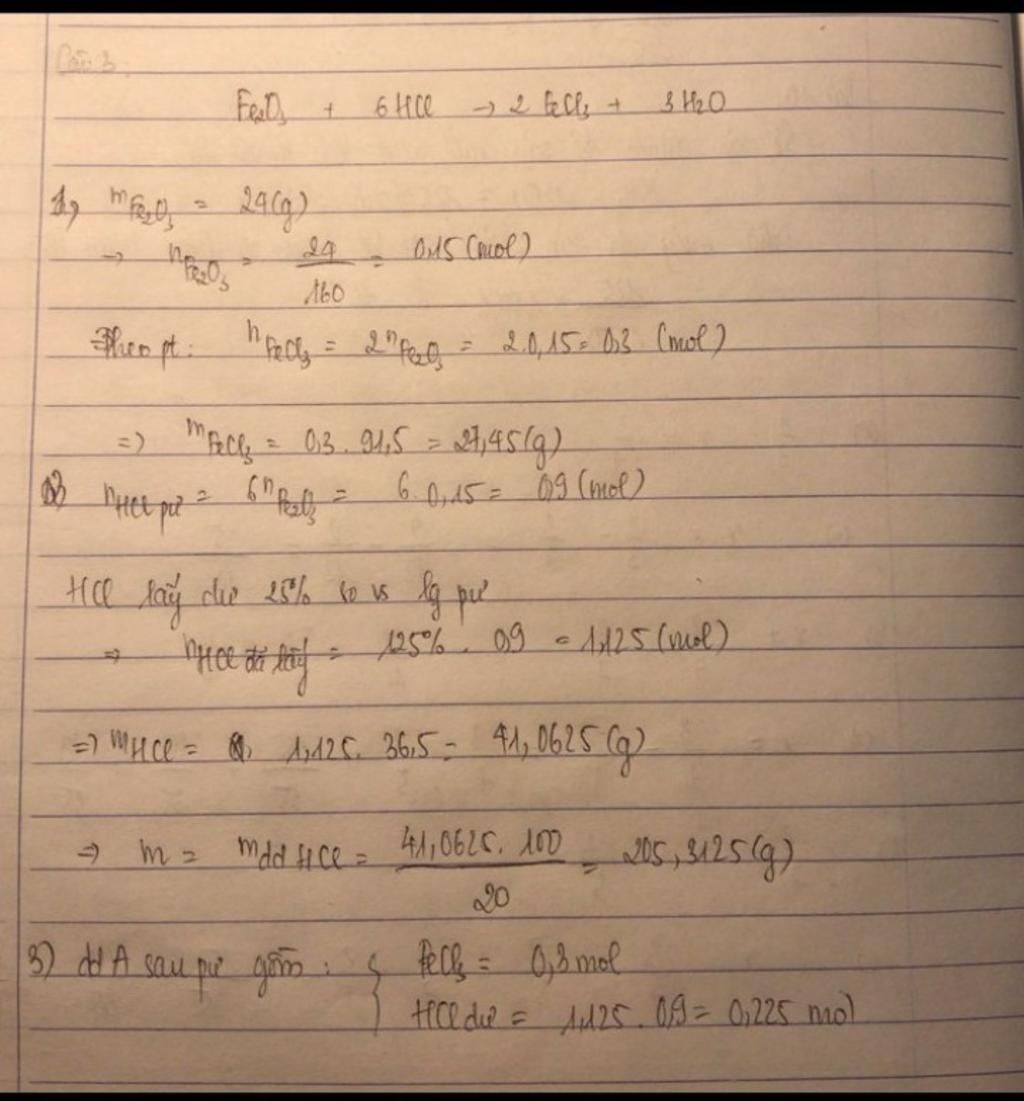 Câu 3.
Fe₂O₃ + 6HCl → 2FeCl₃ + 3H₂O
1, mFe₂O₃ = 24(g)
→ nFe₂O₃ = 24/160 = 0,15 (mol)
Theo pt: nFeCl₃ = 2nFe₂O₃ = 2.0,15 = 0,3 (mol)
=) mFeCl₃ = 0,3 . 91,5 = 27,45(g)
2) nHCl pư = 6nFe₂O₃ = 6. 0,15 = 0,9 (mol)
HCl lấy dư 25% so vs lg pư
⇒ nHCl đã lấy = 125% . 0,9 = 1,125 (mol)
=) mHCl = 1,125. 36,5 = 41,0625 (g)
⇒ m = mdd HCl = 41,0625. 100/20 = 205,3125(g)
3) dd A sau pư gồm : { FeCl₃ = 0,3 mol
HCl dư = 1,125 . 0,9 = 0,225 mol